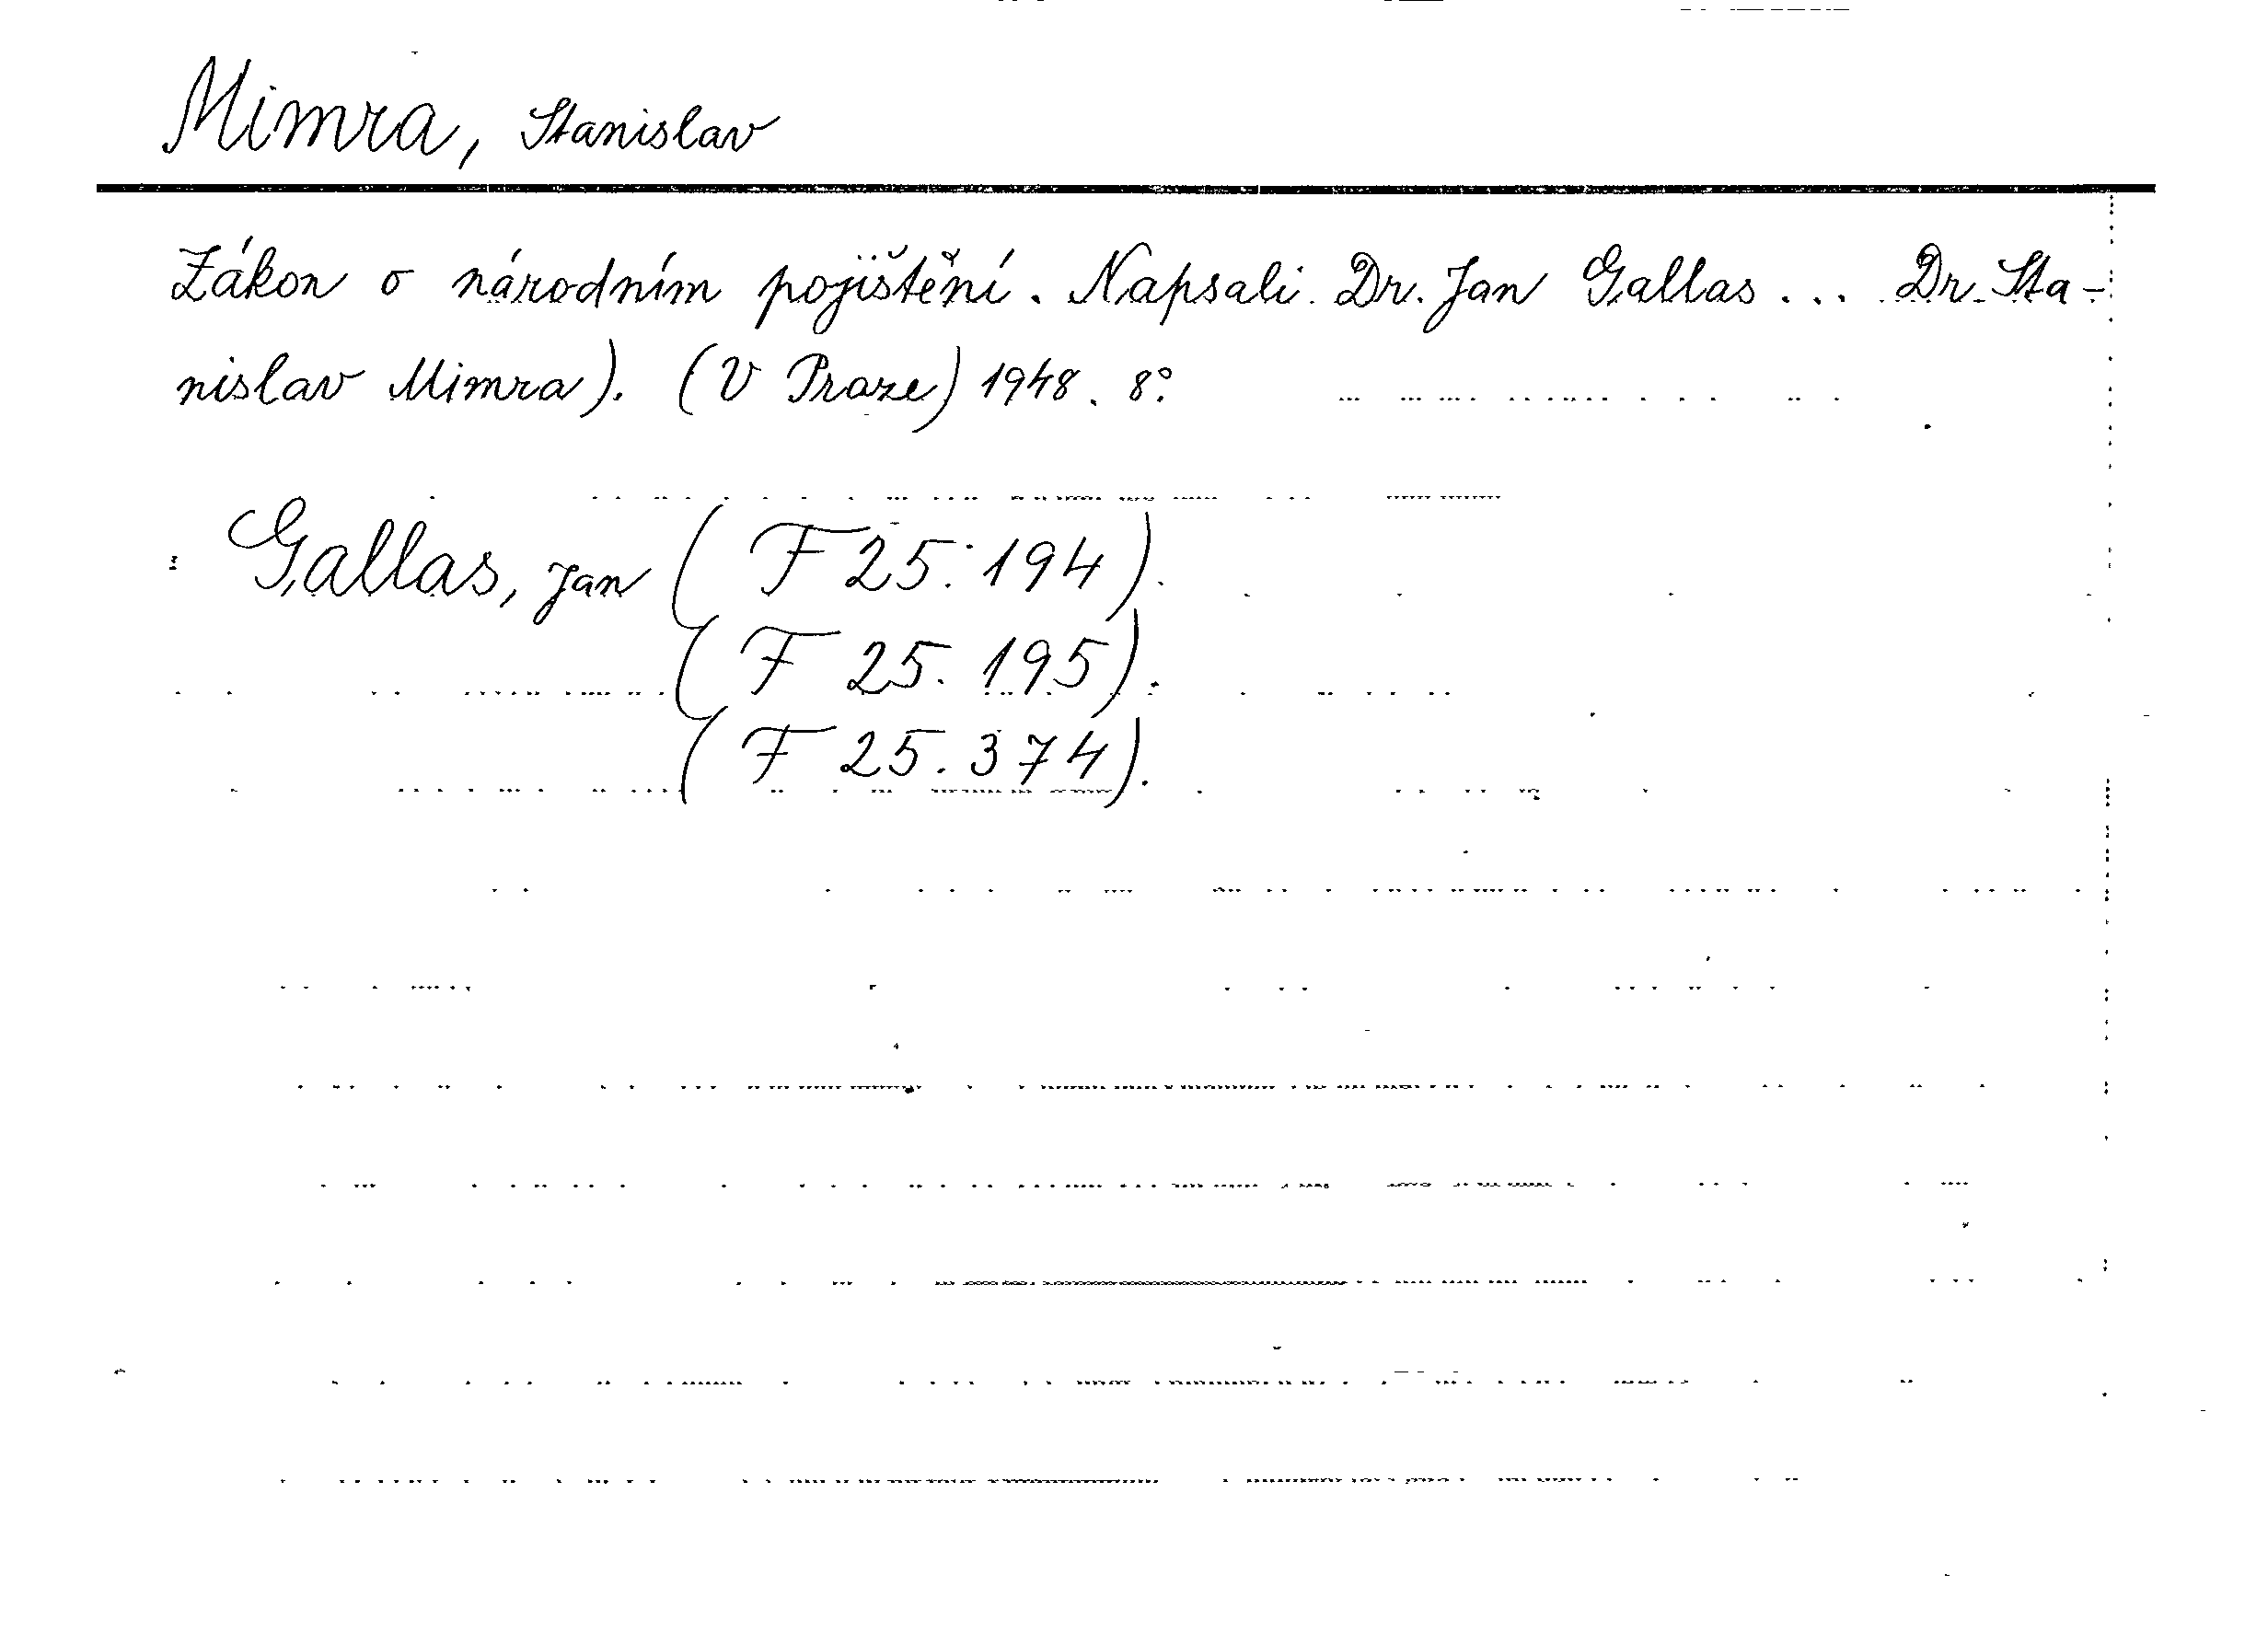 Mimra, Stanislav
Zákon o národním pojištění. Napsali Dr. Jan Gallas ... Dr. Sta-
nislav Mimra). (V Praze) 1948. 8°.
Gallas, Jan (F 25.194).
(F 25.195).
(F 25.374).